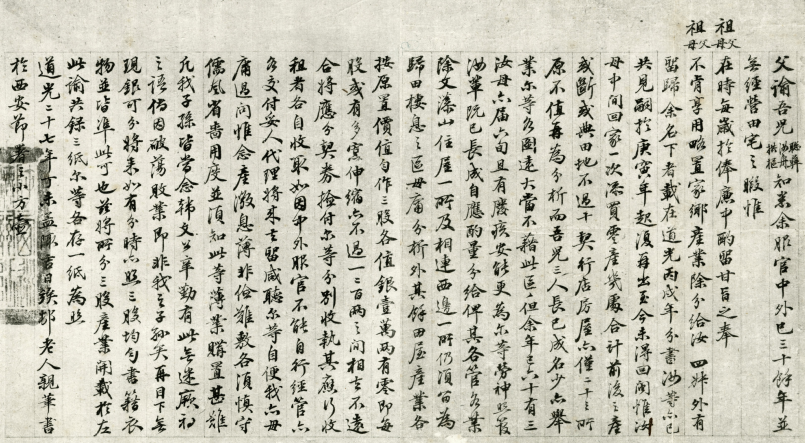 父諭吾兒汝舟聰彝拱樞知悉余服官中外已三十餘年並
無經營田宅之暇惟
祖父母父母在時每歲於俸廉中酌留甘旨之奉
祖父母父母不肯享用略置家鄉產業除分給汝四嬸外有
留歸余名下者載在道光丙戌年分書汝等亦已
共見嗣於庚寅年起復再出至今未得回閩惟汝
母中間回家一次添買零產幾處合計前後之產
或斷或典田地不過十契行店房屋亦僅二十三所
原不值再為分析而吾兒三人長已成名少亦舉
業尔等各圖遠大當不藉此區區但余年已六十有三
汝母亦屆六旬且有廢疾安能更為尔等勞神照管
汝輩既已長成自應酌量分給俾其各管各業
除文藻山住屋一所及相連西邊一所仍須留為
歸田棲息之區毋庸分析外其餘田屋產業各
按原置價值勻作三股各值銀壹萬兩有零即每
股或有多寡伸縮亦不過一二百兩之間相去不遠
合將應分契券檢付尔等分別收執其應行收
租者各自收取如因中外服官不能自行經管亦
各交付妥人代理將來去留咸聽尔等自便我亦毋
庸過問惟念產微息薄非儉難敷各須慎守
儒風省嗇用度並須知此等薄業購置甚難
凡我子孫皆當念韓文公辛勤有此無迷厥初
之語倘因破蕩敗業即非我之子孫矣再目下無
現銀可分將來如有分時亦照三股均勻書籍衣
物並皆準此可也茲將所分三股產業開載於左
此諭共錄三紙尔等各存一紙為照
道光二十七年丁未孟陬吉日竢邨老人親筆書
於西安節署之小方壺